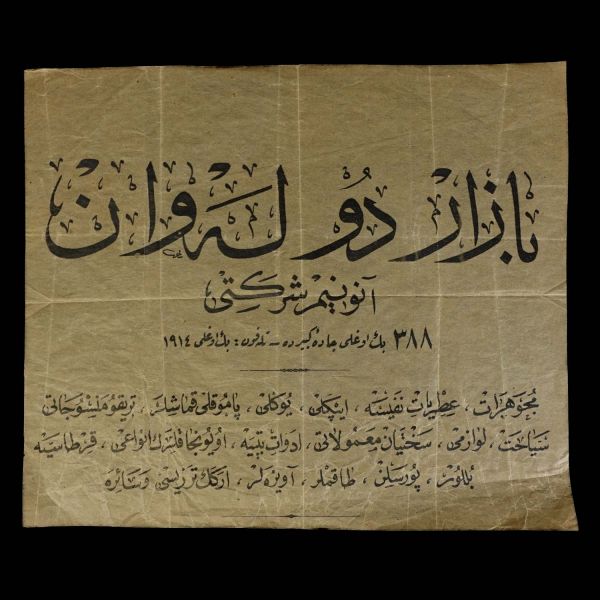 بازار دُو لەوان
آنونیم شركتی
٣٨٨ بك اوغلی جادهٔ كبیرده — تلفون: بك اوغلی ١٩١٤
مجوهرات ، عطریات نفیسه ، ایپكلی ، یوكلی ، پاموقلی قماشلر ، تریقو منسوجاتی
سیاحت ، لوازمی ، سختیان معمولاتی ، ادوات بیتیه ، اویونجاقلرك انواعی ، قرطاسیه
بللور ، پورسلن ، طاقملر ، آویزه لر ، اركك ترزیسی وسائره